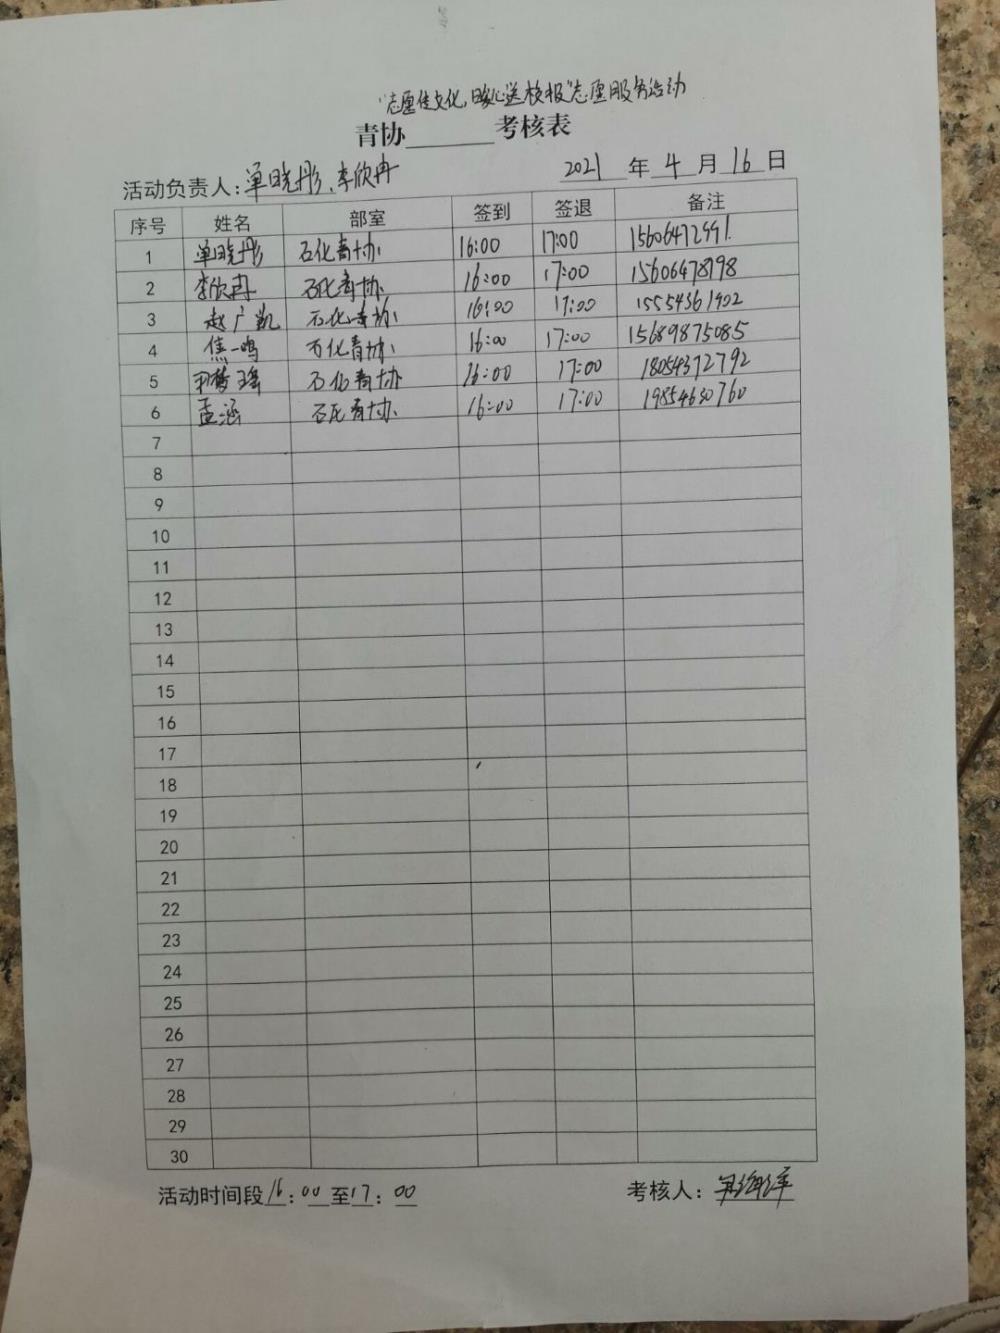 “志愿传文化，暖心送校报”志愿服务活动
青协______考核表
活动负责人：单晓彤、李欣冉 2021 年 4 月 16 日
序号 姓名 部室 签到 签退 备注
1 单晓彤 石化青协 16:00 17:00 15606472991
2 李欣冉 石化青协 16:00 17:00 15606478798
3 赵广凯 石化青协 16:00 17:00 15554361902
4 焦一鸣 石化青协 16:00 17:00 15689875085
5 石化青协 16:00 17:00 18054372792
6 孟涵 石化青协 16:00 17:00 19854630760
7
8
9
10
11
12
13
14
15
16
17
18
19
20
21
22
23
24
25
26
27
28
29
30
活动时间段 16：00 至 17：00 考核人：